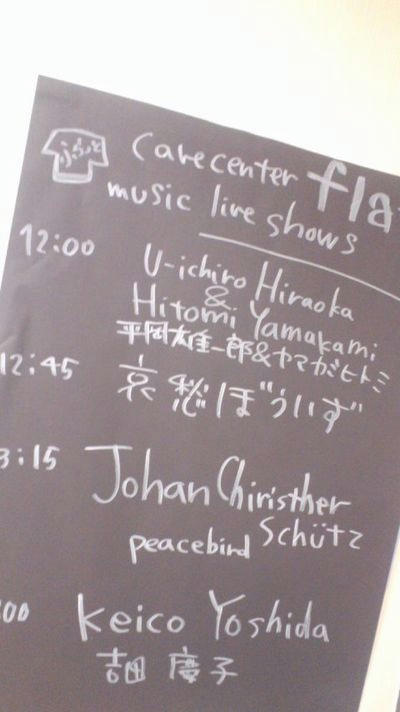 ふらっと
Carecenter fla
music live shows
12:00
U-ichiro Hiraoka
&
Hitomi Yamakami
平岡雄一郎&ヤマガミヒトミ
12:45
哀愁ぼういず
3:15
Johan Chiristher
Schütz
peacebird
:00
Keico Yoshida
吉田慶子